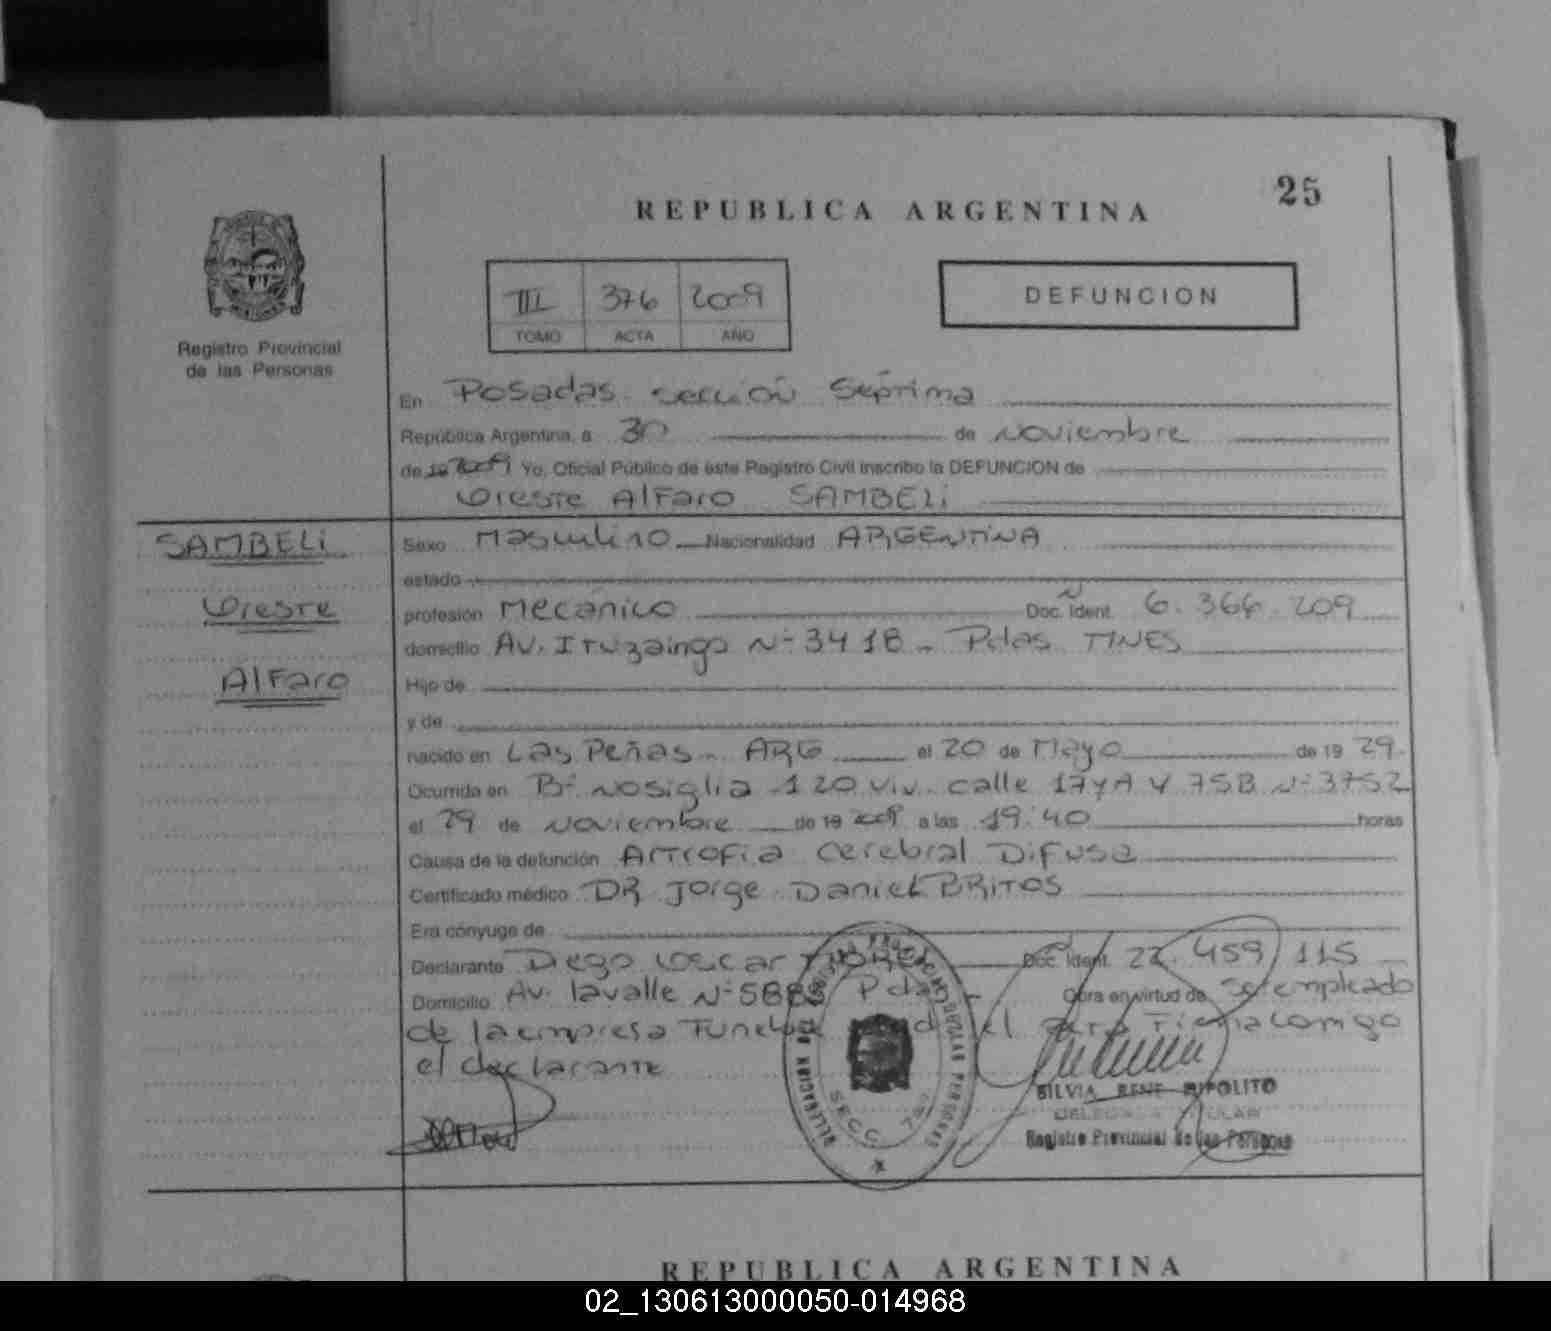 25
REPUBLICA ARGENTINA
III 376 2009
TOMO ACTA AÑO
DEFUNCION
Registro Provincial
de las Personas
En Posadas sección Séptima
República Argentina, a 30 de Noviembre
de 2009 Yo, Oficial Público de este Registro Civil inscribo la DEFUNCION de
Oreste Alfaro SAMBELi
SAMBELi
Oreste
Alfaro
Sexo Masculino Nacionalidad ARGENTINA
estado
profesión Mecánico Doc. Ident. 6.366.209
domicilio Av. Ituzaingo N° 3418 - Pdas
Hijo de
y de
nacido en Las Peñas - ARG el 20 de Mayo de 19 29
Ocurrida en B° Nosiglia 120 viv. calle 17yA y 75B N° 3752
el 29 de Noviembre de 19 2009 a las 19:40 horas
Causa de la defunción Artrofia cerebral Difusa
Certificado médico DR Jorge Daniel BRITOS
Era cónyuge de
Declarante Diego Oscar Doc. Ident. 22.459.115
Domicilio Av. lavalle N° Obra en virtud de ser empleado
de la empresa
el declarante
DELEGACION
SECC. 7
SILVIA RENE RIPOLITO
Registro Provincial de las Personas
REPUBLICA ARGENTINA
02_130613000050-014968